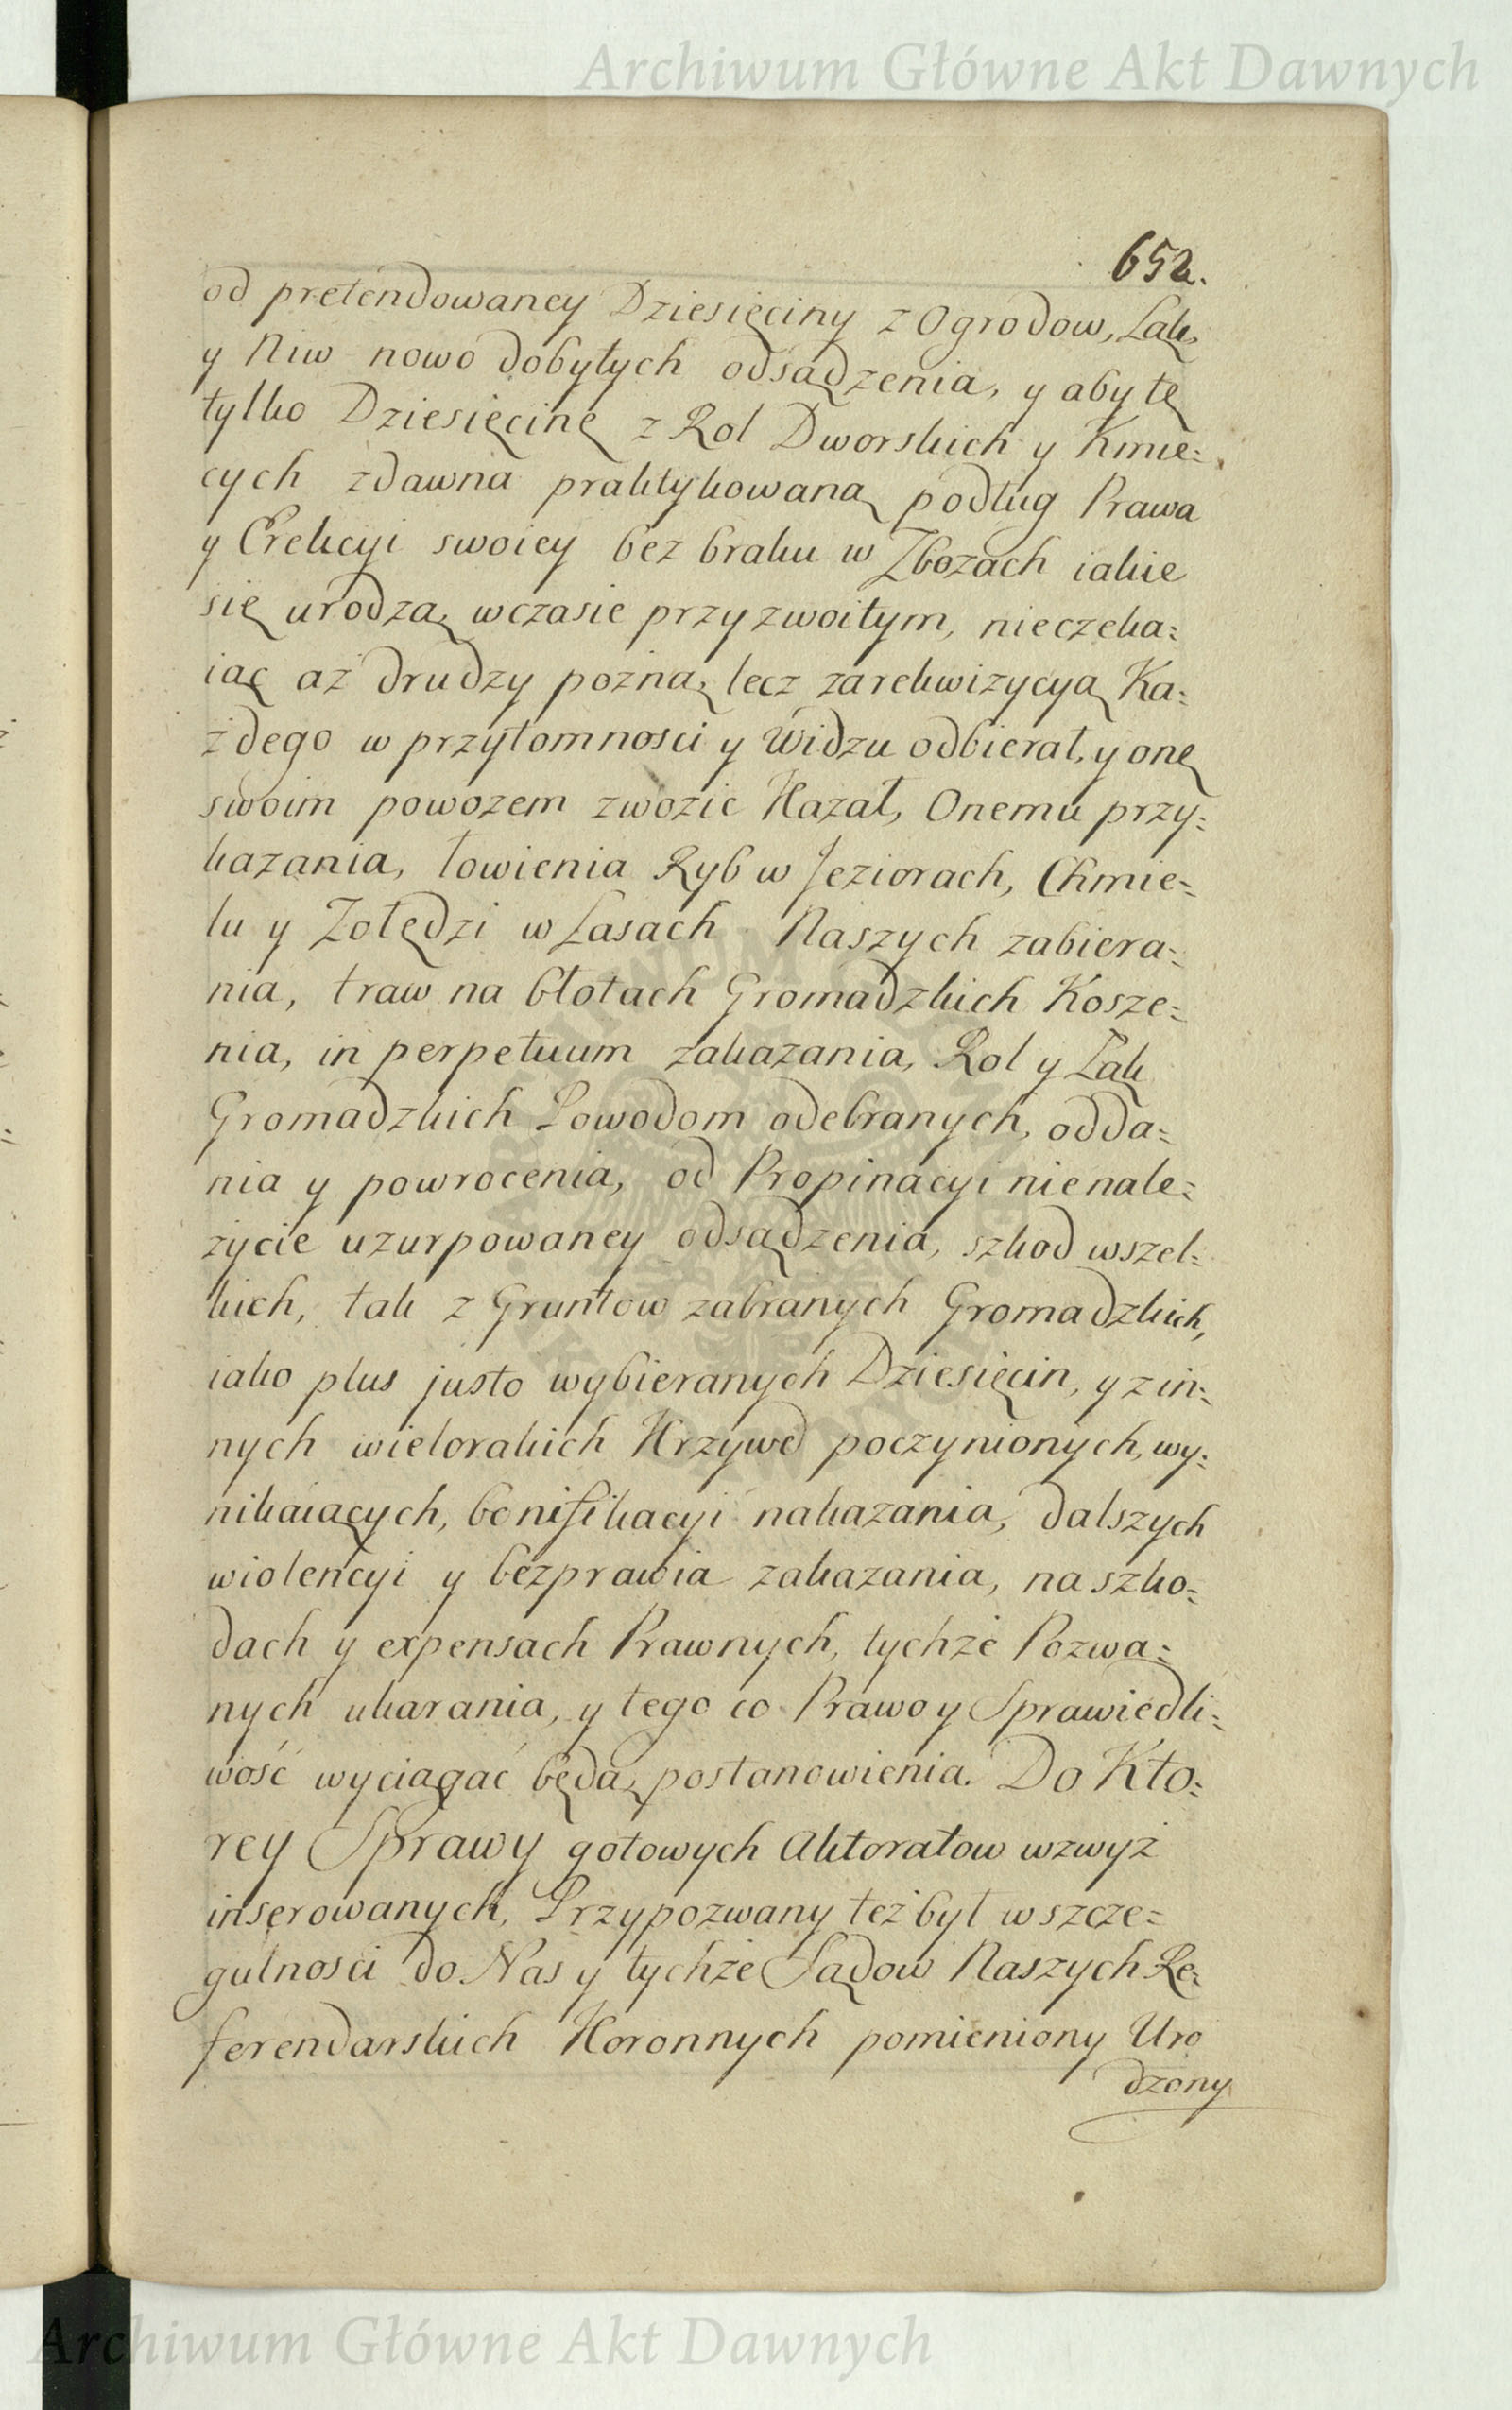 Archiwum Główne Akt Dawnych
652.
od pretendowaney Dziesięciny z Ogrodow, Łąk,
y Niw nowo dobytych odsądzenia, y aby tę
tylko Dziesięcinę z Rol Dworskich y Kmie=
cych zdawna praktykowaną podług Prawa
y Erekcyi swoiey bez braku w Zbozach iakie
się urodzą, wczasie przyzwoitym, nieczeka=
iąc aż drudzy pozną, lecz zarekwizycyą Ka=
żdego w przytomnosci y Widzu odbierał, y onę
swoim powozem zwozic Kazał, Onemu przy=
kazania, łowienia Ryb w Jeziorach, Chmie=
lu y Zołędzi w Lasach Naszych zabiera=
nia, traw na błotach Gromadzkich Kosze=
nia, in perpetuum zakazania, Rol y Łąk
Gromadzkich Powodom odebranych, odda=
nia y powrocenia, od Propinacyi nienale=
życie uzurpowaney odsądzenia, szkod wszel=
kich, tak z Gruntow zabranych Gromadzkich,
iako plus justo wybieranych Dziesięcin, y z in=
nych wielorakich Krzywd poczynionych, wy=
nikaiących, bonifikacyi nakazania, dalszych
wiolencyi y bezprawia zakazania, na szko=
dach y expensach Prawnych, tychże Pozwa=
nych ukarania, y tego co Prawo y Sprawiedli=
wość wyciągać będą, postanowienia. Do Kto=
rey Sprawy gotowych Aktoratow wzwyż
inserowanych, Przypozwany też był w szcze=
gulnosci do Nas y tychże Sądow Naszych Re=
ferendarskich Koronnych pomieniony Uro
dzony
Archiwum Główne Akt Dawnych